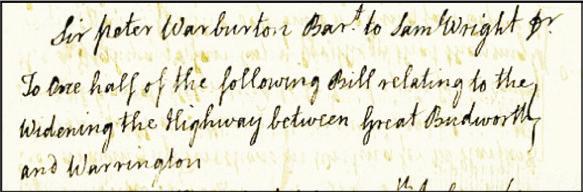 Sir Peter Warburton Bar.t to Sam Wright Dr.
To One half of the following Bill relating to the
Widening the Highway between Great Budworth
and Warrington